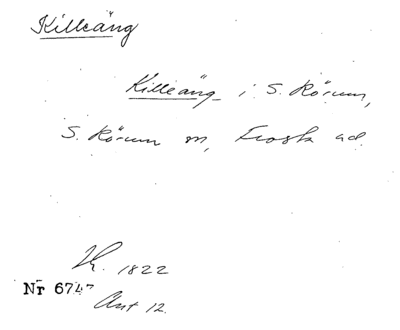 Killeäng
Killeäng i S. Rörum,
S. Rörum sn, Frosta hd.
1822
Nr 6747
Akt 12.